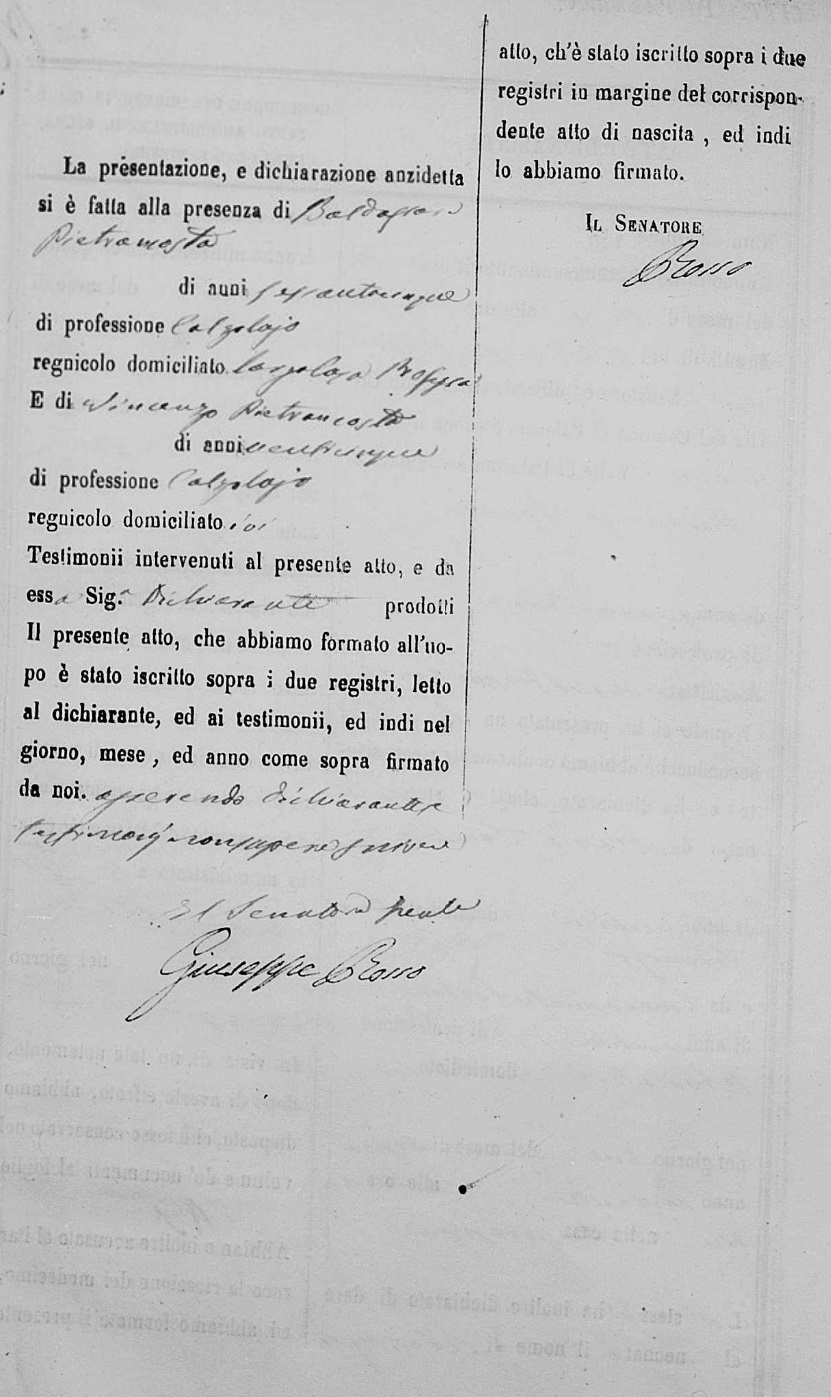 La presentazione, e dichiarazione anzidetta
si è fatta alla presenza di Baldassare
Pietracosta
di anni sessantacinque
di professione Calzolajo
regnicolo domiciliato
E di Vincenzo Pietrancosta
di anni venticinque
di professione Calzolajo
regnicolo domiciliato ivi
Testimonii intervenuti al presente atto, e da
essa Sig.ª Dichiarante prodotti
Il presente atto, che abbiamo formato all'uo-
po è stato iscritto sopra i due registri, letto
al dichiarante, ed ai testimonii, ed indi nel
giorno, mese, ed anno come sopra firmato
da noi. avendo dichiarante e
testimonj non sapere scrivere
Il Senatore
Giuseppe Rosso
atto, ch'è stato iscritto sopra i due
registri in margine del corrispon-
dente atto di nascita, ed indi
lo abbiamo firmato.
IL SENATORE
Rosso